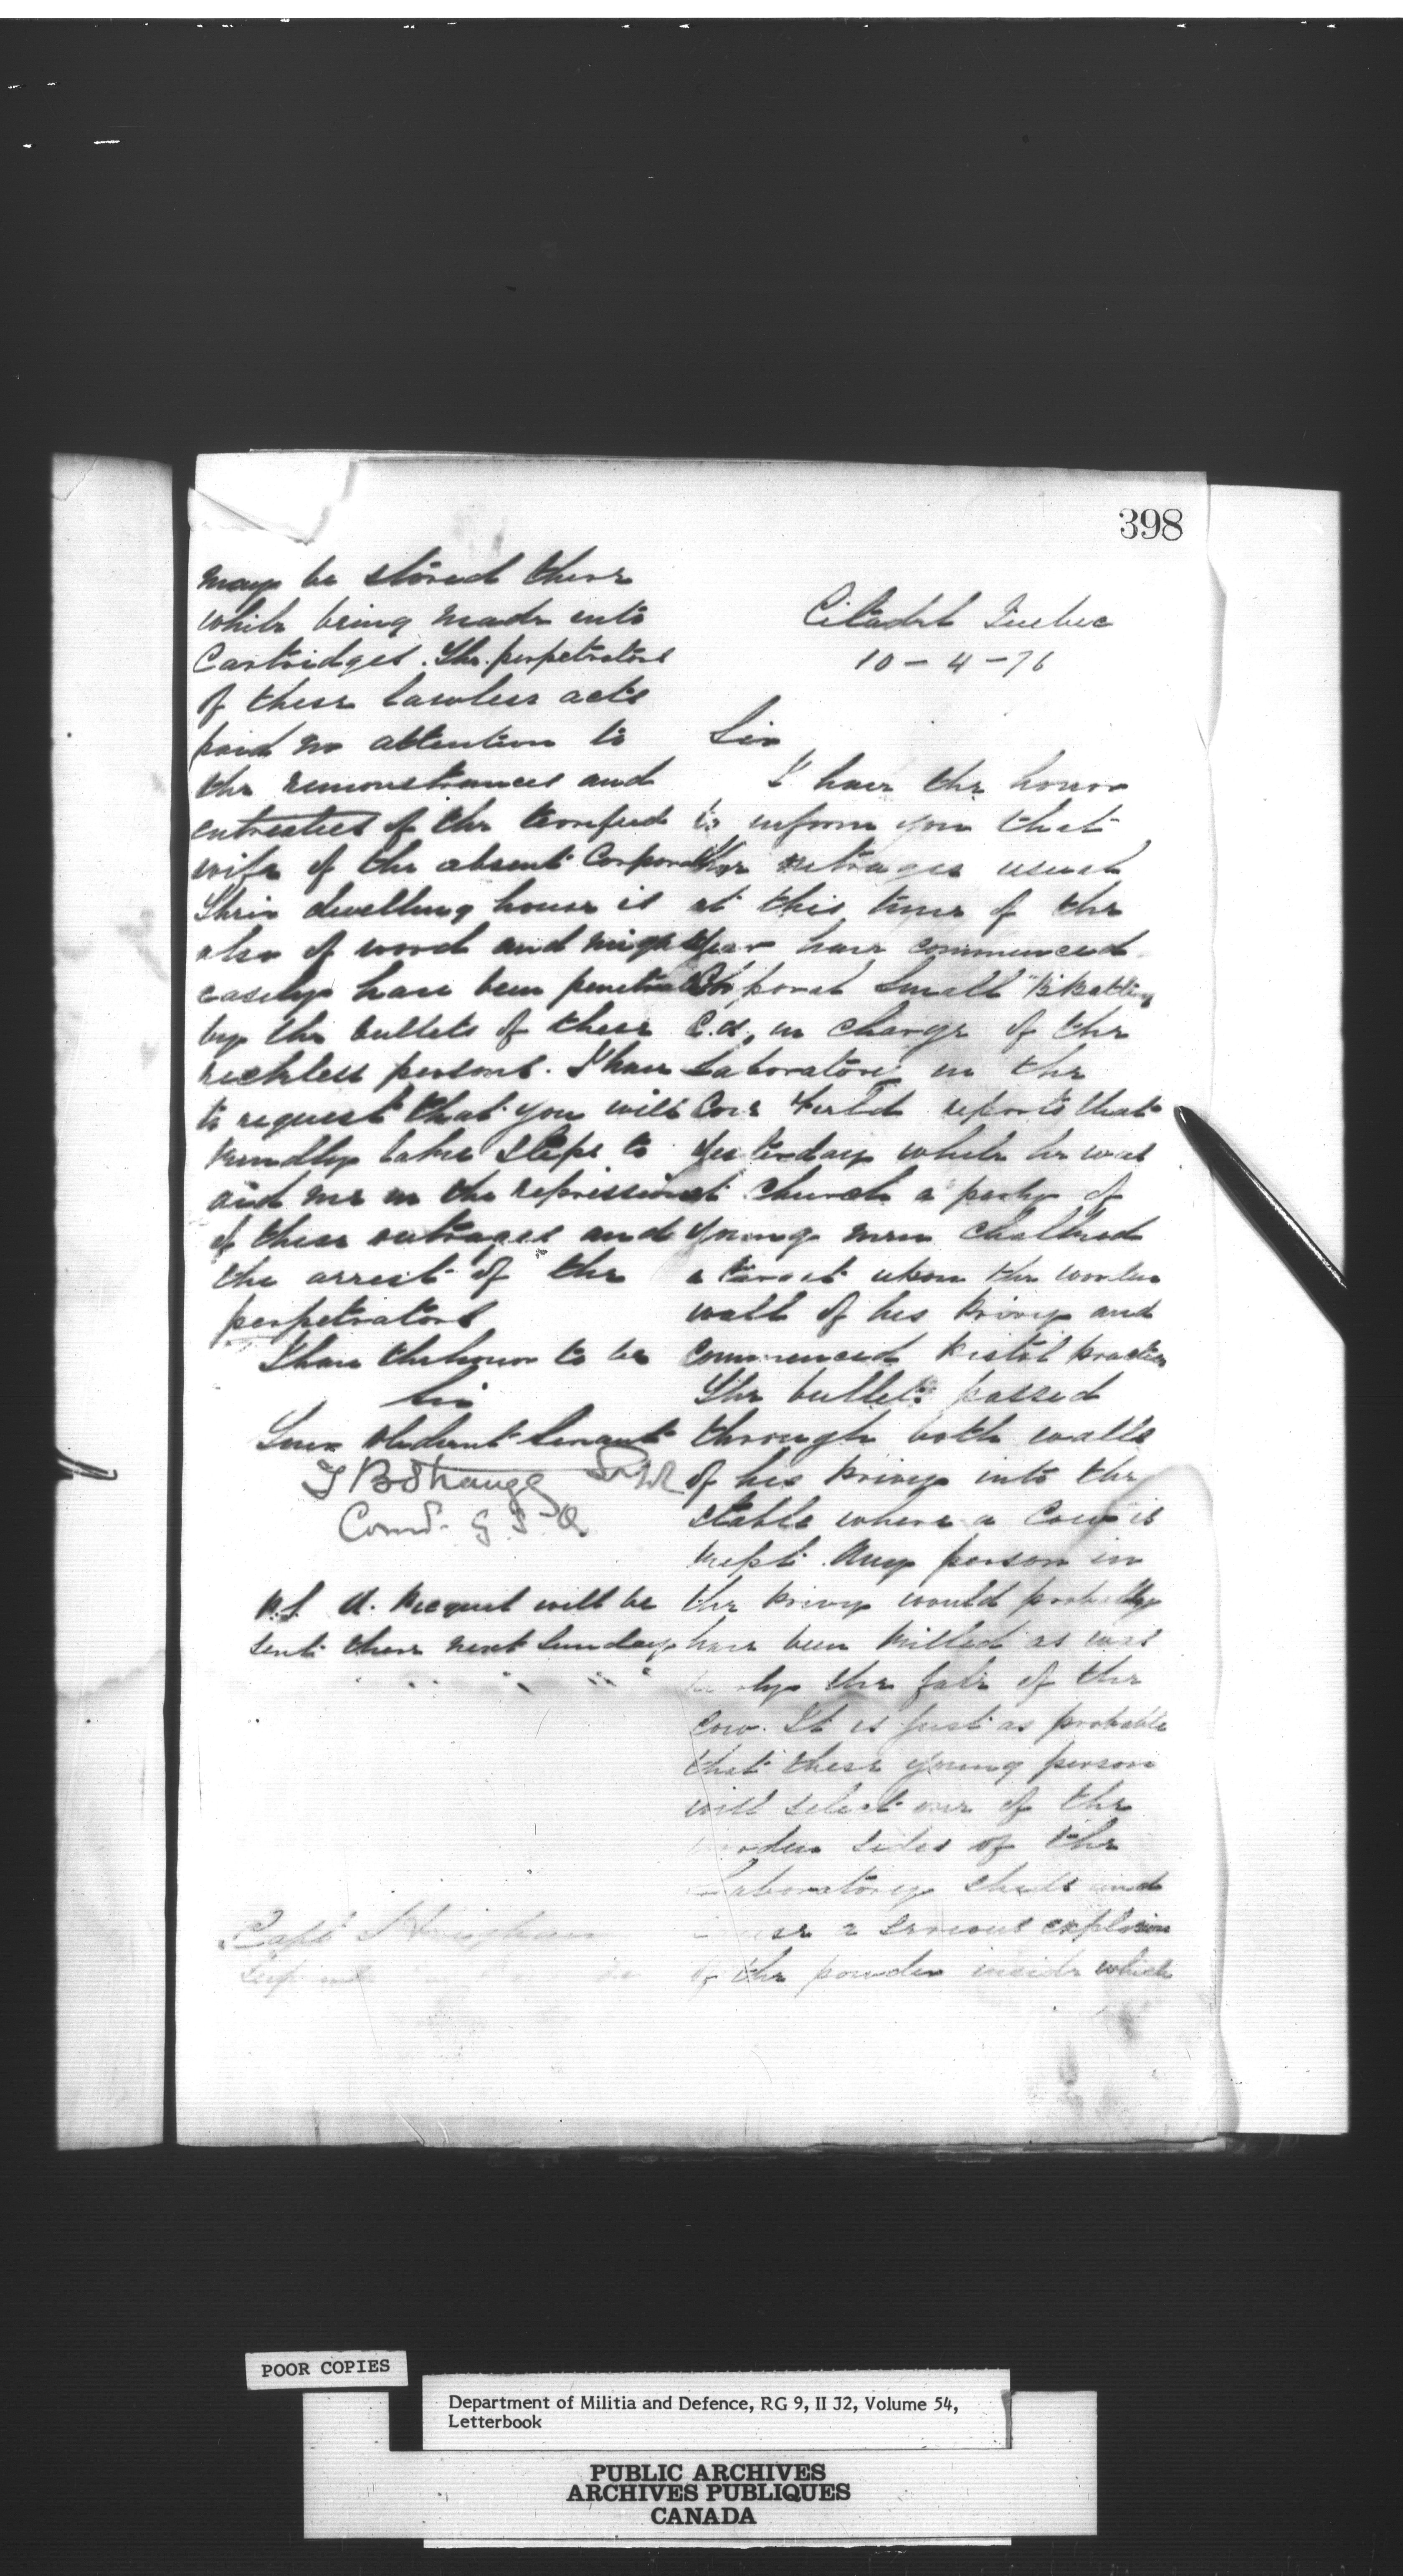 398
Citadel Quebec
10-4-76
Sir
I have the honor
to inform you that
the outrages usual
at this time of the
year have commenced
Corporal Small "B" Battery
C.A. in charge of the
Laboratory in the
Cove Field reports that
yesterday while he was
at church a party of
young men chalked
a target upon the wooden
wall of his privy and
commenced pistol practice
The bullets passed
through both walls
of his privy into the
stable where a cow is
kept. Any person in
the privy would probably
have been killed as was
the fate of the
cow. It is just as probable
that these young person
will select one of the
wooden sides of the
Laboratory sheds and
cause a serious explosion
of the powder inside which
may be stored there
while being made into
Cartridges. The perpetrators
of these lawless acts
paid no attention to
the remonstrances and
entreaties of the terrified
wife of the absent Corporal
Their dwelling house is
also of wood and might
easily have been penetrated
by the bullets of these
reckless persons. I have
to request that you will
kindly take steps to
aid me in the repression
of these outrages and
the arrest of the
perpetrators
I have the honor to be
Sir
Your obedient Servant
T B Strange
Comd. G S Q
P.S. A. Picquet will be
sent there next Sunday
Capt
POOR COPIES
Department of Militia and Defence, RG 9, II J2, Volume 54,
Letterbook
PUBLIC ARCHIVES
ARCHIVES PUBLIQUES
CANADA